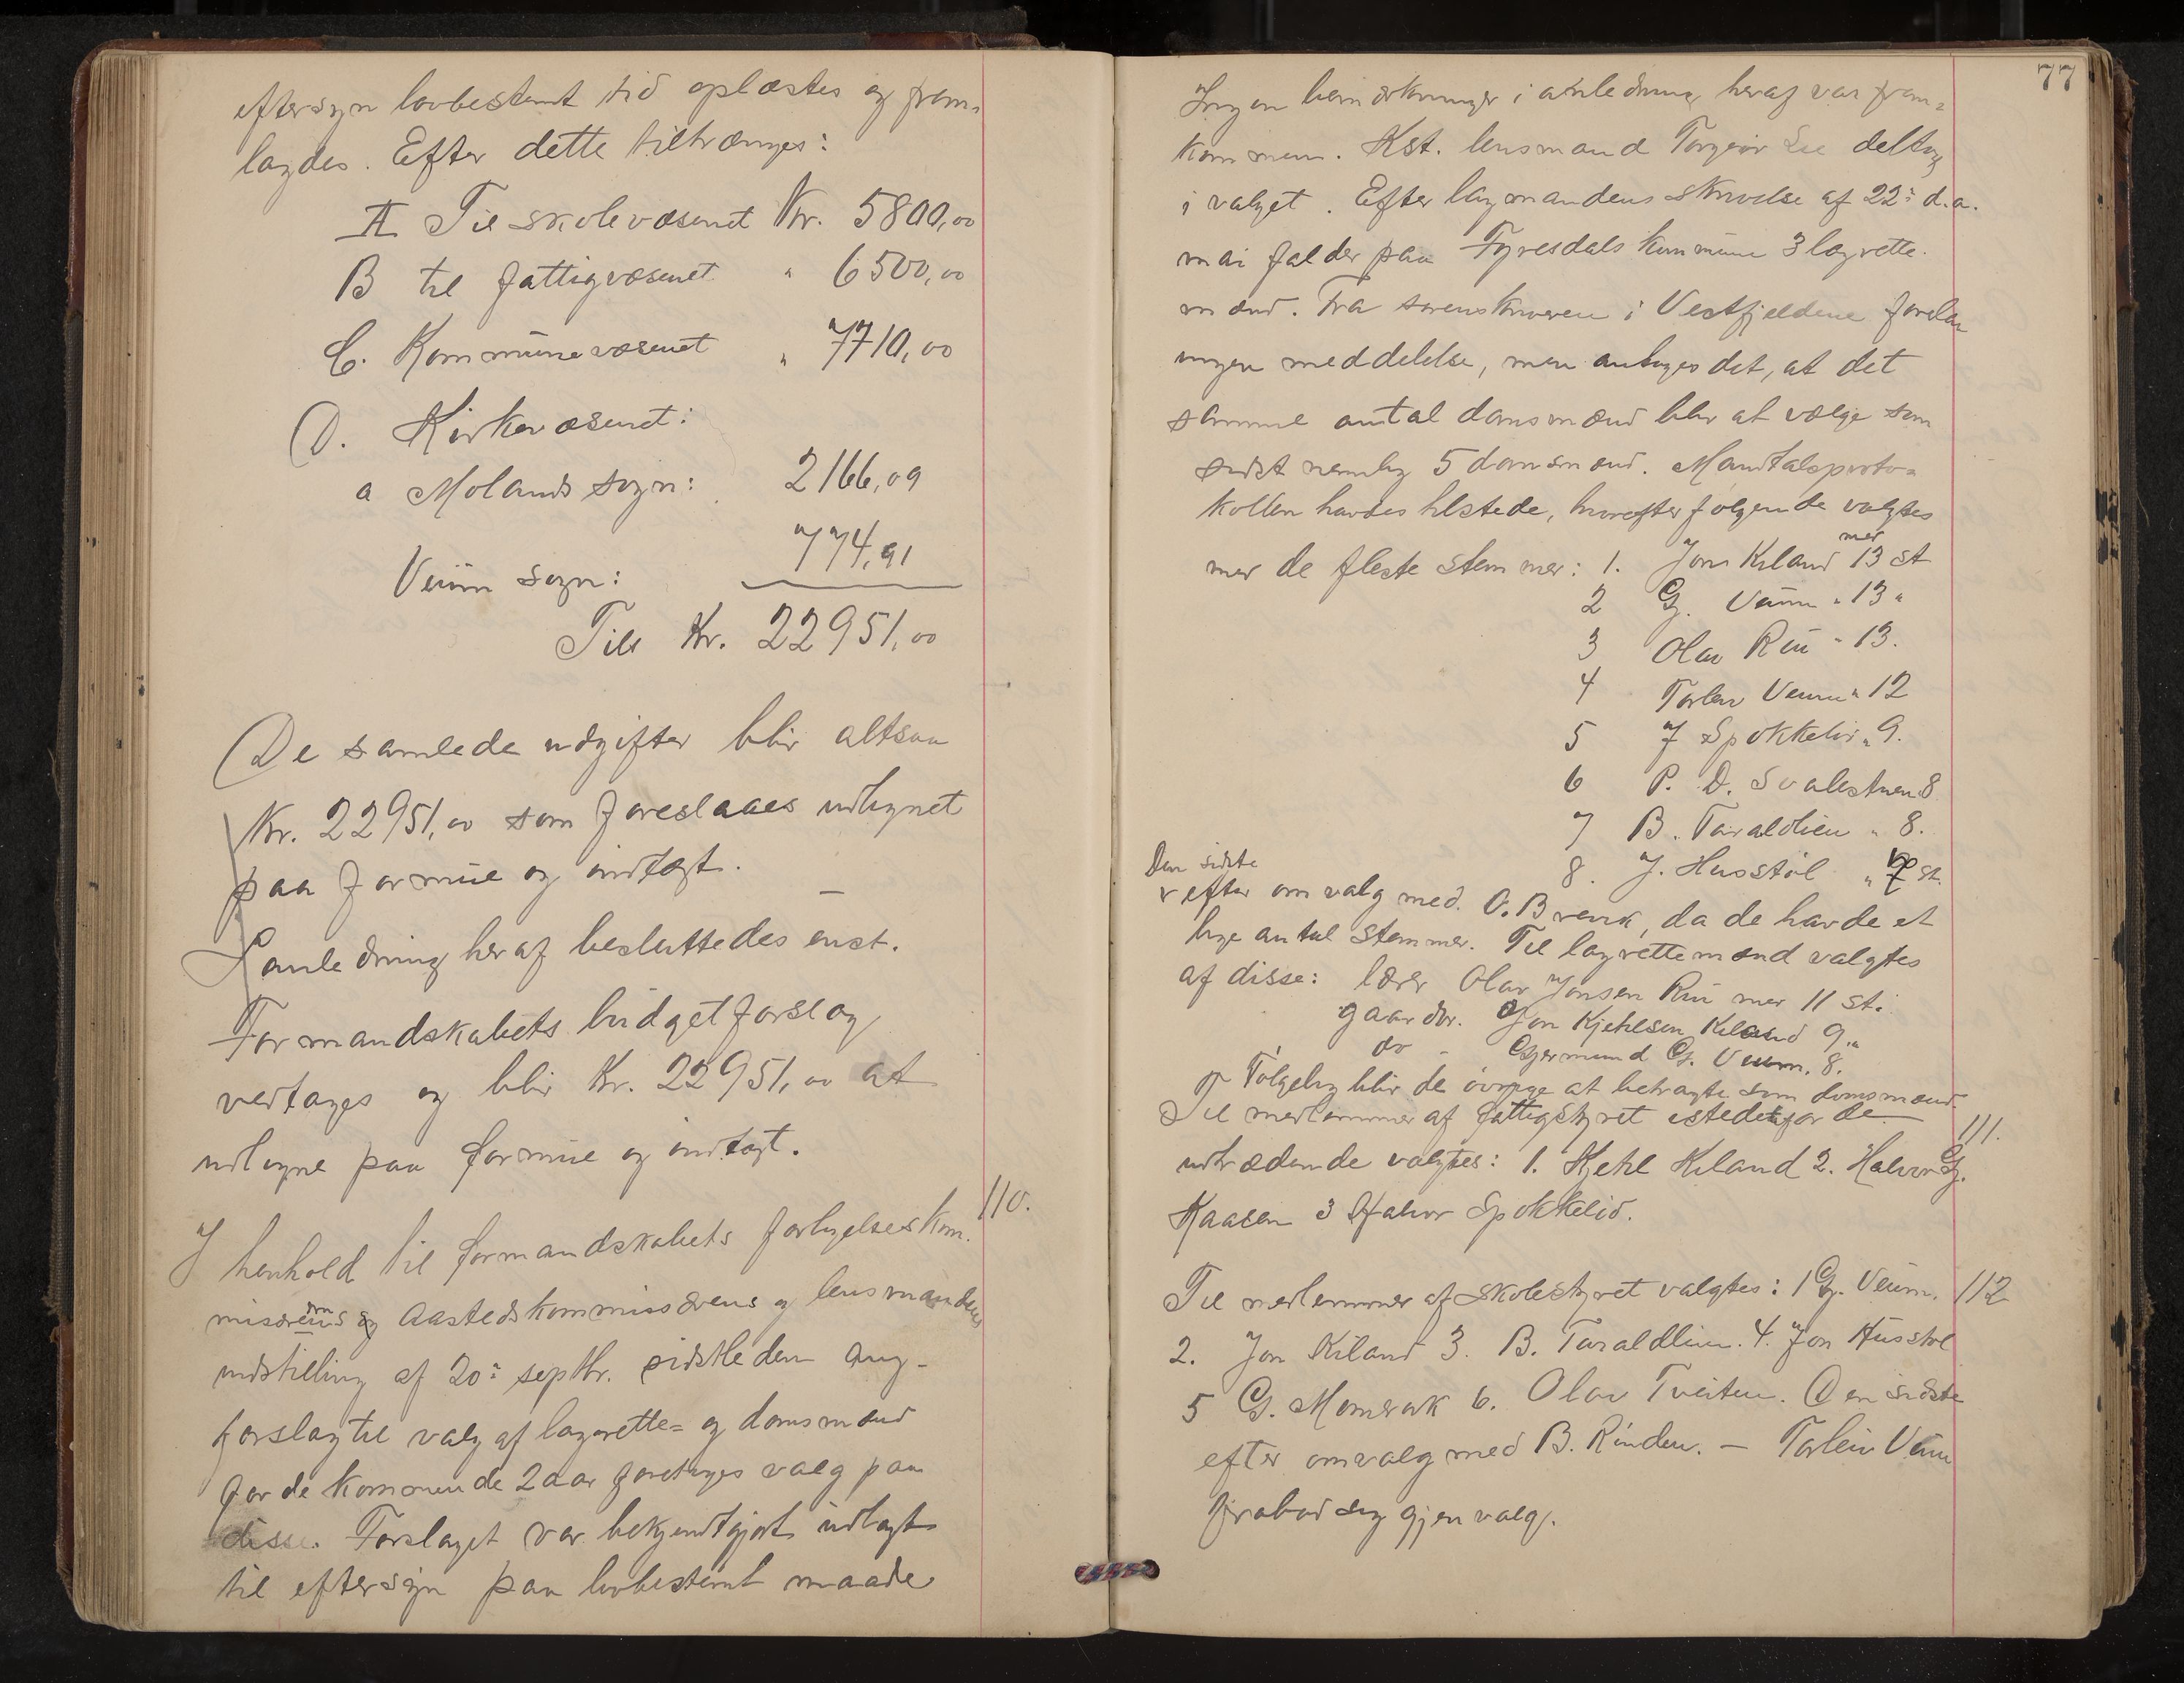 eftersyn lovbestemt tid oplæstes og frem-
lagdes. Efter dette tiltrænges:
A Til skolevæsenet Kr. 5800,00
B til fattigvæsenet " 6500,00
C. Kommunevæsenet " 7710,00
D. Kirkevæsenet:
a Molands sogn: 2166,09
Veum sogn: 774,91
Tils Kr. 22951,00
De samlede udgifter blir altsaa
Kr. 22951,00 som foreslaaes udlignet
paa formue og indtægt. —
I anledning heraf besluttedes enst.
Formandskabets budgetforslag
vedtages og blir Kr. 22951,00 at
udligne paa formue og indtægt.
110.
I henhold til formandskabets forligelseskom-
misærens og aastedskommissærens og lensmandens
indstilling af 20: septbr. sidstleden ang-
forslag til valg af lagrette= og domsmænd
for de kommende 2 aar foretages valg paa
disse. Forslaget var bekjendtgjort udlagt
til eftersyn paa lovbestemt maade
77
Ingen bemærkninger i anledning heraf var frem=
kommen. Kst. lensmand Torgeir Lie deltog
i valget. Efter lagmandens skrivelse af 22: d.a.
mai falder paa Fyresdals kommune 3 lagrette-
mænd. Fra sorenskriveren i Vestfjeldene forelaa
ingen meddelelse, men antages det, at det
samme antal domsmænd blir at vælge som
sidst nemlig 5 domsmænd. Mandtalsproto=
kollen havdes tilstede, hvorefter følgende valgtes
med de fleste stemmer: 1. Jon Kiland med 13 st
2 G. Veum " 13 "
3 Olav Rui " 13.
4 Torleiv Veum " 12
5 J Spokkeliv " 9.
6 P. D. Svalestuen 8
7 B. Taraldlien " 8.
8. J. Husstøl " 7 st.
Den sidste
efter omvalg med O. Brenk, da de havde et
lige antal stemmer. Til lagrettemænd valgtes
af disse: lærer Olav Jonsen Rui med 11 st.
gaardbr. Jon Kjetilsen Kiland 9 "
do - Gjermund G. Veum. 8.
Følgelig blir de øvrige at betragte som domsmænd
Til medlemmer af fattigstyret istedetfor de — 111.
udtrædende valgtes: 1. Kjetil Kiland 2. Halvor G.
Kaasen 3 Halvor Spokkelid.
Til medlemmer af skolestyret valgtes: 1 G. Veum. 112
2. Jon Kiland 3. B. Taraldlien. 4. Jon Husstøl
5 G. Momrak 6. Olav Tveiten. Den sidste
efter omvalg med B. Rinden. — Torleiv Veum
frabad sig gjenvalg.